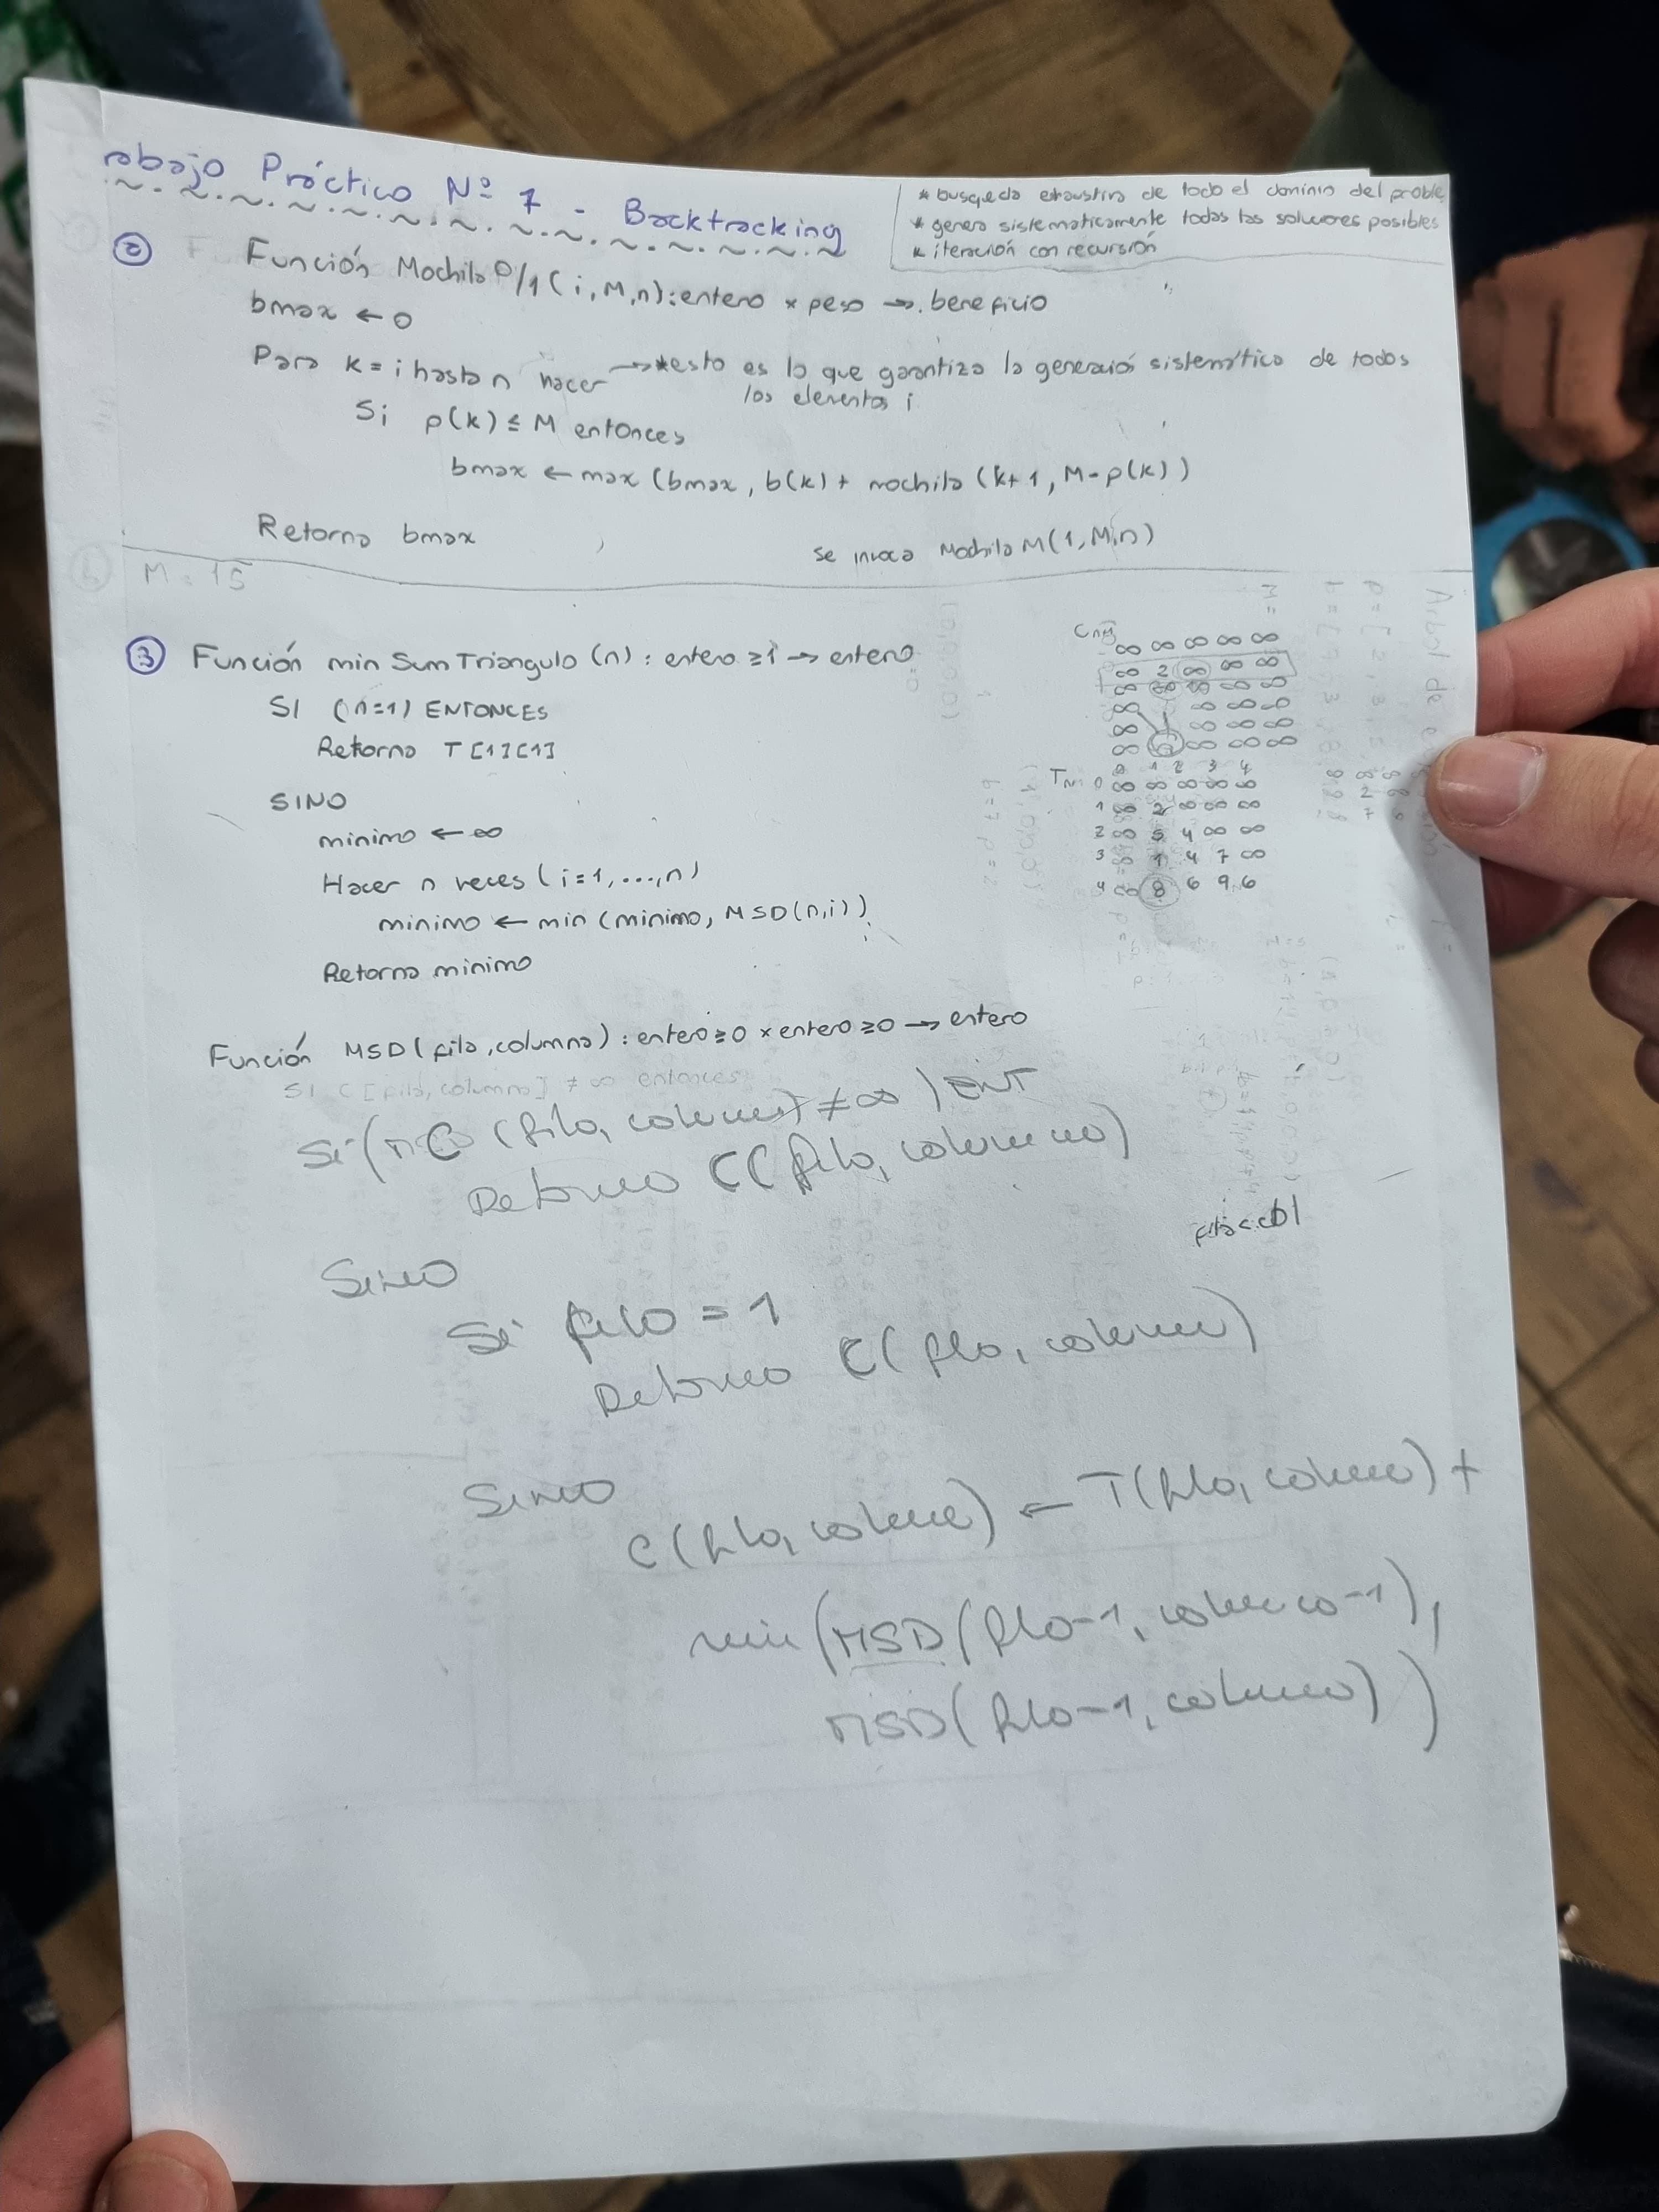 abajo Práctico Nº 7 - Backtracking
* busqueda exhaustiva de todo el dominio del proble
* genera sistematicamente todas las soluciones posibles
* iteración con recursión
② Función Mochila 0/1 (i, M, n): entero × peso → beneficio
bmax ← 0
Para k = i hasta n hacer → *esto es lo que garantiza la generació sistemática de todos
los elementos i
Si p(k) ≤ M entonces
bmax ← max (bmax, b(k) + mochila (k+1, M-p(k))
Retorna bmax
se invoca Mochila M(1, M, n)
M = 15
③ Función min Sum Triangulo (n) : entero ≥1 → entero
SI (n=1) ENTONCES
Retorna T[1][1]
SINO
minimo ← ∞
Hacer n veces (i=1,...,n)
minimo ← min (minimo, MSD(n,i))
Retorna minimo
∞ ∞ ∞ ∞ ∞
∞ 2 ∞ ∞ ∞
∞ ∞ 10 ∞ ∞
∞ ∞ ∞ ∞
∞ ∞ ∞ ∞
∞ ∞ ∞ ∞
0 1 2 3 4
0 ∞ ∞ ∞ ∞ ∞
1 ∞ 2 ∞ ∞ ∞
2 ∞ 5 4 ∞ ∞
3 ∞ 1 4 7 ∞
4 ∞ 8 6 9 6
Función MSD (fila, columna) : entero ≥0 × entero ≥0 → entero
SI C [fila, columna] ≠ ∞ entonces
Si (C (fila, columna) ≠ ∞ ) ENT
Retorna C(fila, columna)
fila < col
Sino
Si fila = 1
Retorna C(fila, columna)
Sino
C(fila, columna) ← T(fila, columna) +
min (MSD(fila-1, columna-1),
MSD(fila-1, columna))